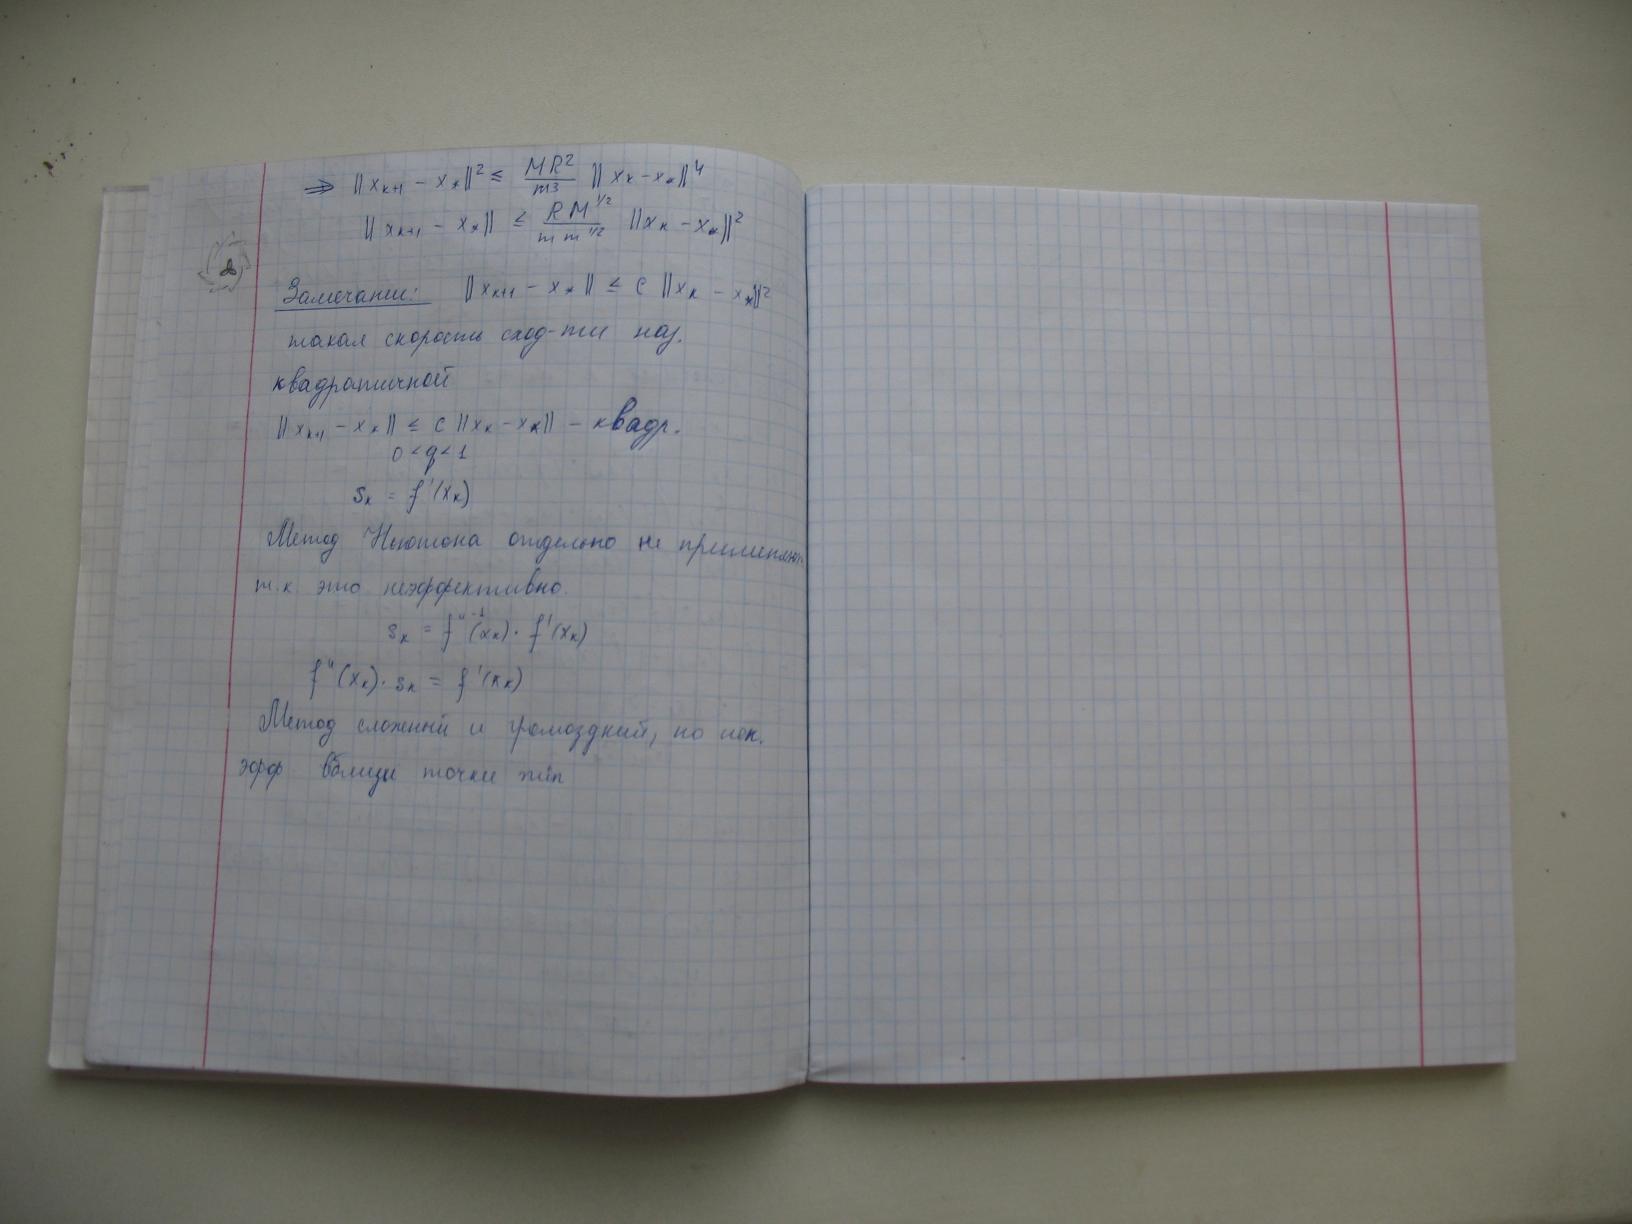 ⇒ ||xₖ₊₁ − x*||² ≤ MR²/m³ ||xₖ − x*||⁴
||xₖ₊₁ − x*|| ≤ RM^{1/2}/(m m^{1/2}) ||xₖ − x*||²
Замечание: ||xₖ₊₁ − x*|| ≤ C ||xₖ − x*||²
такая скорость сход-ти наз.
квадратичной
||xₖ₊₁ − x*|| ≤ C ||xₖ − x*|| – квадр.
0 < q < 1
sₖ = f'(xₖ)
Метод Ньютона отдельно не применяют
т.к это неэффективно.
sₖ = f''⁻¹(xₖ) · f'(xₖ)
f''(xₖ) · sₖ = f'(xₖ)
Метод сложный и громоздкий, но
эфф вблизи точки min